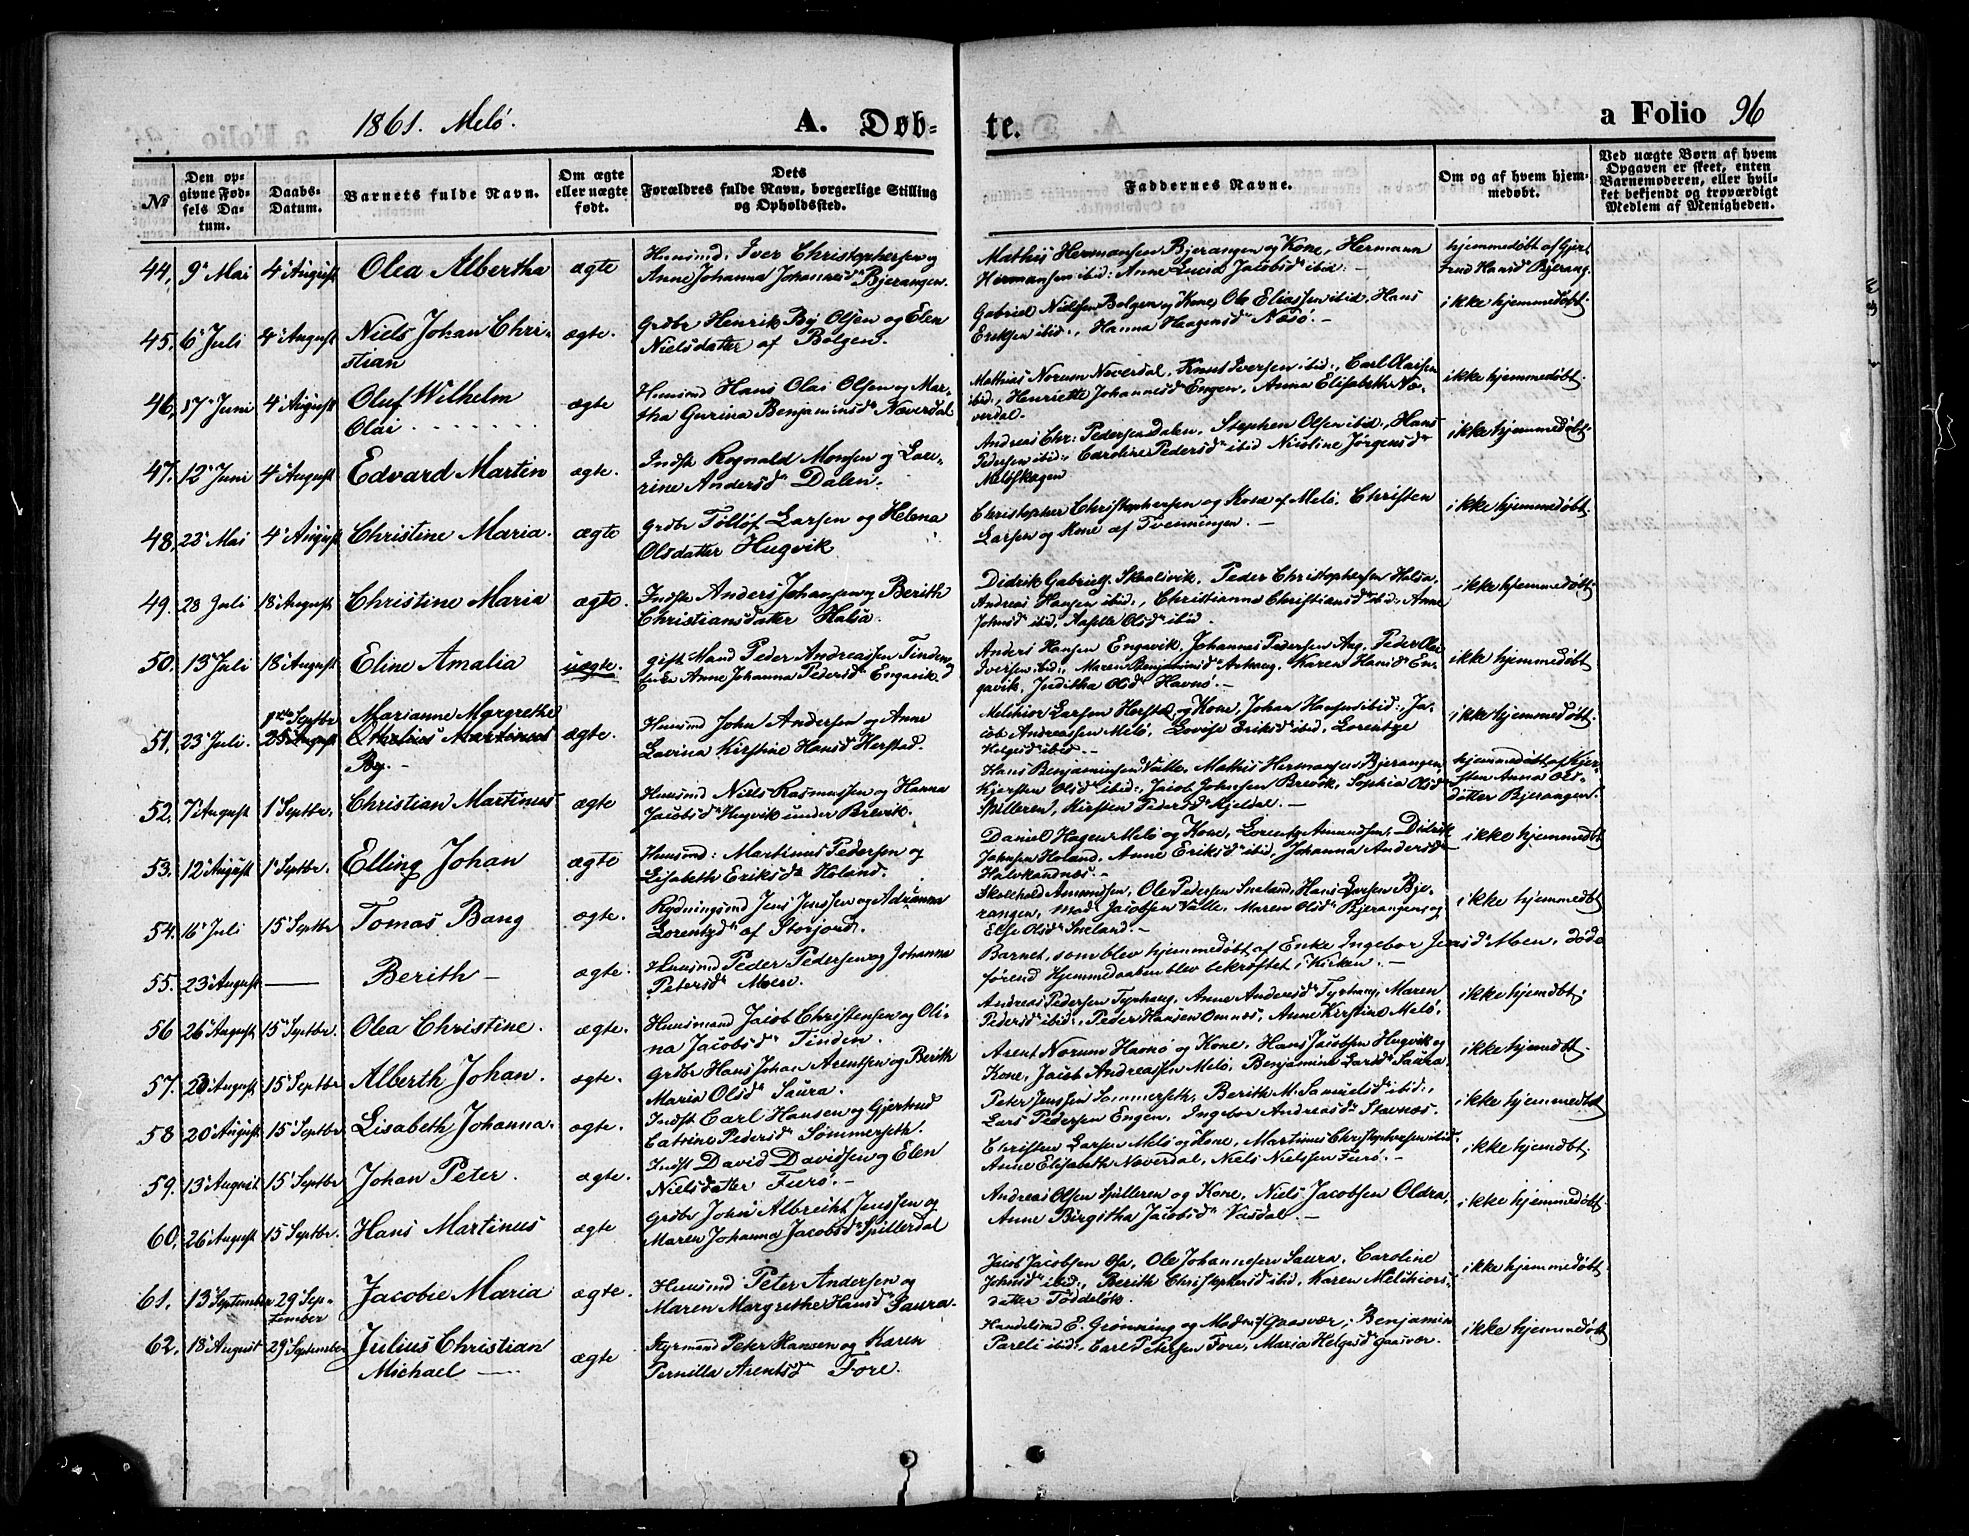 1861. Melö. A. Døb- te. a Folio 96
No
Den opgivne Fødsels Datum.
Daabs-Datum.
Barnets fulde Navn.
Om ægte eller uægte født.
Dets Forældres fulde Navn, borgerlige Stilling og Opholdssted.
Faddernes Navne.
Om og af hvem hjemmedøbt.
Ved uægte Børn af hvem Opgaven er skeet, enten Barnemoderen, eller hvilket bekjendt og troværdigt Medlem af Menigheden.
44, 9 Mai 4 August Olea Albertha ægte Huusmd: Iver Christophersen og
Anne Johanna Johansd Bjerangen.
Mathis Hermansen Bjerangen og Kone, Hermann
Hermansen ibid: Anne Lucia Jacobsd ibid: –
hjemmedøbt af Gjert
rud Hansd Bjerang.
45, 6 Juli 4 August Niels Johan Chri-
stian
ægte. Grdbr Henrik By Olsen og Elen
Nielsdatter af Bolgen.
Gabriel Nielsen Bolgen og Kone, Ole Eliassen ibid, Hans
Eriksen ibid:, Hanna Haagensd Nosö. –
ikke hjemmedøbt.
46, 17 Juni 4 August Oluf Wilhelm
Olai
ægte Huusmd Hans Olai Olsen og Mar-
tha Gurina Benjaminsd Næverdal
Mathias Norum Noverdal, Knut Iversen ibid:, Carl Olaisen
ibid., Henriette Johannesd Engen, Anna Elisabeth No-
verdal.
ikke hjemmedøbt
47. 12 Juni 4 August Edvard Martin ægte. Indst Rognald Monsen og Lor-
rine Andersd Dalen.
Andreas Chr: Pedersen Dalen, Stephen Olsen ibid:, Hans
Pedersen ibid:, Caroline Pedersd ibid Nicoline Jörgensd
Melöskagen
ikke hjemmedøbt
48, 22 Mai 4 August Christine Maria. ægte Grdbr Tollöf Larsen og Helena
Olsdatter Hugvik
Christopher Christophersen og Kone af Melö, Christen
Larsen og Kone af Tvenningen. –
ikke hjemmedøbt
49. 28 Juli 18 August Christine Maria ægte. Indst Anders Johansen og Berith
Christiansdatter Halsa.
Didrik Gabriels. Skaalsvik, Peder Christophersen Halsa,
Andreas Hansen ibid:, Christianna Christiansd ibid: Anne
Johnsd ibid, Olsd ibid.
ikke hjemmedøbt
50. 13 Juli 18 August Eline Amalia uægte. gift Mand Peder Andreassen Tinden og
Enke Anne Johanna Pedersd Engavik.
Anders Hansen Engavik, Johannes Pedersen Aag, Peder Ole
Iversen ibid:, Maren Benjaminsd Aahaug, Karen Hansd En-
gavik, Juditha Olsd Havnö. –
ikke hjemmedøbt
51, 23 Juli. 1ste Septbr
25 August
Marianne Margrethe
Othelius Martinus
By. –
ægte. Huusmd John Andersen og Anne
Lovina Kirstine Hansd Herstad.
Melchior Larsen Herstad og Kone, Johan Hansen ibid:, Ja-
cob Andreassen Melö, Lovise Eriksd ibid, Lorentze
Helgesd ibid. –
ikke hjemmedøbt
52, 7 August 1 Septbr. Christian Martinus ægte Huusmd Niels Rasmussen og Hanna
Jacobsd Hugvik under Brevik.
Hans Benjaminsen Valle, Mathis Hermansen Bjerangen,
Kjersten Olsd ibid:, Jacob Johnsen Brevik, Sophia Olsd
Spilleren, Kirsten Pedersd Kjeldal. –
hjemmedøbt af Kjer-
sten Anna Ols-
datter Bjerangen.
53. 12 August 1 Septbr. Elling Johan ægte Huusmd: Martinus Pedersen og
Lisabeth Eriksd Holand.
Daniel Hagen Melö og Kone, Lorentz Amundsen, Didrik
Johnsen Holand, Anne Eriksd ibid, Johanna Andersd
Halsrandnæs –
ikke hjemmedøbt
54. 16 Juli 15 Septbr Tomas Bang ægte. Rydningsmd Jens Jenssen og Adrianna
Lorentzd af Storjord.
Skolehold Amundsen, Ole Pedersen Sneland, Hans Larsen Bje-
rangen, Mad. Jacobsen Valle, Maren Olsd Bjerangen og
Else Olsd Sneland. –
ikke hjemmedøbt
55. 23 August. — Berith – ægte. Huusmd Peder Pedersen og Johanna
Petersd Moen.
Barnet, som blev hjemmedøbt af Enke Ingebor Jensd Moen, døde
førend Hjemmedaaben blev bekræftet i Kirken. –
56 26 August 15 Septbr. Olea Christine. ægte. Huusmand Jacob Christensen og Oli-
na Jacobsd Tinden.
Andreas Pedersen Tyrhaug, Anne Andersd Tyrhaug, Maren
Pedersd ibid:, Peder Hansen Omnæs, Anne Kirstine Melö.
ikke hjemdøbt.
57. 20 August 15 Septbr Alberth Johan. ægte. Grdbr Hans Johan Arentsen og Berith
Maria Olsd Saura.
Arent Norum Havnö og Kone, Hans Jacobsen Hugvik og
Kone, Jacob Andreassen Melö, Benjamine Larsd Saura.
ikke hjemdøbt.
58 20 August 15 Septbr. Lisabeth Johanna. ægte. Indst Carl Hansen og Gjertrud
Catrine Pedersd Sommerseth.
Peter Jenssen Sommerseth, Berith M. Samuelsd ibid:,
Lars Pedersen Engen, Ingebor Andreasd Stavnæs.
ikke hjemmedøbt
59. 13 August 15 Septbr Johan Peter. ægte. Indst David Davidsen og Elen
Nielsdatter Furö. –
Christen Larsen Melö og Kone, Martinus Christophersen ibid.
Anne Elisabeth Noverdal, Niels Nielsen Furö. –
ikke hjemdøbt.
60. 26 August 15 Septbr. Hans Martinus ægte Grdbr John Albrecht Jenssen og
Maren Johanna Jacobsd Spillerdal
Andreas Olsen Spilleren og Kone, Niels Jacobsen Oldra,
Anne Birgitha Jacobsd Vasdal. –
ikke hjemmedøbt
61. 13 September 29 Sep-
tember
Jacobie Maria ægte. Huusmd Peter Andersen og
Maren Margrethe Hansd Saura.
Jacob Jacobsen Os, Ole Johannesen Saura, Caroline
Johnsd ibid:, Berith Christophersd ibid, Karen Melchiors-
datter Töddelök.
ikke hjemmedøbt
62. 18 August 29 September Julius Christian
Michael —
ægte Styrmand Peter Hansen og Karen
Pernilla Arentsd Fore.
Handelsmd E. Grønning og Mad. af Gaasvær, Benjamin
Pareli ibid:, Carl Petersen Fore, Maria Helgesd Gaasvær.
ikke hjemmedøbt